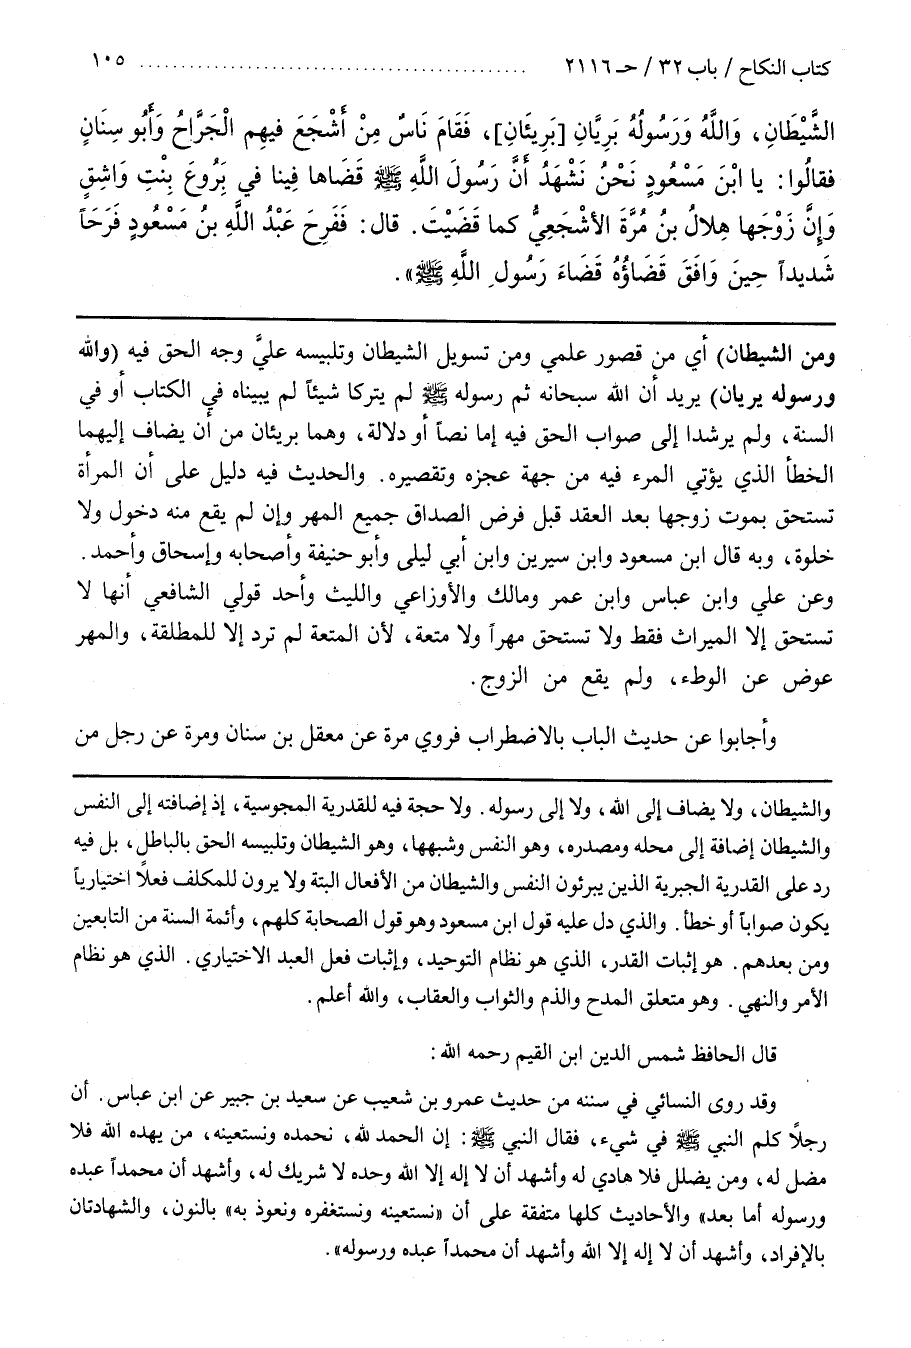 كتاب النكاح / باب ٣٢ / حـ ٢١١٦ ............................................. ١٠٥
الشَّيْطَانِ، وَاللَّهُ وَرَسُولُهُ بَرِيَّانِ [بَرِيئَانِ]، فَقَامَ نَاسٌ مِنْ أَشْجَعَ فيهِم الْجَرَّاحُ وَأَبُو سِنَانٍ
فقالُوا: يا ابْنَ مَسْعُودٍ نَحْنُ نَشْهَدُ أَنَّ رَسُولَ اللَّهِ ﷺ قَضَاها فِينا في بَرْوَعَ بِنْتِ وَاشِقٍ
وَإِنَّ زَوْجَها هِلالُ بنُ مُرَّةَ الأشْجَعِيُّ كما قَضَيْتَ. قال: فَفَرِحَ عَبْدُ اللَّهِ بنُ مَسْعُودٍ فَرَحَاً
شَديداً حِينَ وَافَقَ قَضَاؤُهُ قَضَاءَ رَسُولِ اللَّهِ ﷺ».
ومن الشيطان) أي من قصور علمي ومن تسويل الشيطان وتلبيسه عليَّ وجه الحق فيه (والله
ورسوله بريان) يريد أن الله سبحانه ثم رسوله ﷺ لم يتركا شيئاً لم يبيناه في الكتاب أو في
السنة، ولم يرشدا إلى صواب الحق فيه إما نصاً أو دلالة، وهما بريئان من أن يضاف إليهما
الخطأ الذي يؤتي المرء فيه من جهة عجزه وتقصيره. والحديث فيه دليل على أن المرأة
تستحق بموت زوجها بعد العقد قبل فرض الصداق جميع المهر وإن لم يقع منه دخول ولا
خلوة، وبه قال ابن مسعود وابن سيرين وابن أبي ليلى وأبو حنيفة وأصحابه وإسحاق وأحمد.
وعن علي وابن عباس وابن عمر ومالك والأوزاعي والليث وأحد قولي الشافعي أنها لا
تستحق إلا الميراث فقط ولا تستحق مهراً ولا متعة، لأن المتعة لم ترد إلا للمطلقة، والمهر
عوض عن الوطء، ولم يقع من الزوج.
وأجابوا عن حديث الباب بالاضطراب فروي مرة عن معقل بن سنان ومرة عن رجل من
والشيطان، ولا يضاف إلى الله، ولا إلى رسوله. ولا حجة فيه للقدرية المجوسية، إذ إضافته إلى النفس
والشيطان إضافة إلى محله ومصدره، وهو النفس وشبهها، وهو الشيطان وتلبيسه الحق بالباطل، بل فيه
رد على القدرية الجبرية الذين يبرئون النفس والشيطان من الأفعال البتة ولا يرون للمكلف فعلاً اختيارياً
يكون صواباً أو خطأ. والذي دل عليه قول ابن مسعود وهو قول الصحابة كلهم، وأئمة السنة من التابعين
ومن بعدهم. هو إثبات القدر، الذي هو نظام التوحيد، وإثبات فعل العبد الاختياري. الذي هو نظام
الأمر والنهي. وهو متعلق المدح والذم والثواب والعقاب، والله أعلم.
قال الحافظ شمس الدين ابن القيم رحمه الله:
وقد روى النسائي في سننه من حديث عمرو بن شعيب عن سعيد بن جبير عن ابن عباس. أن
رجلاً كلم النبي ﷺ في شيء، فقال النبي ﷺ: إن الحمد لله، نحمده ونستعينه، من يهده الله فلا
مضل له، ومن يضلل فلا هادي له وأشهد أن لا إله إلا الله وحده لا شريك له، وأشهد أن محمداً عبده
ورسوله أما بعد» والأحاديث كلها متفقة على أن «نستعينه ونستغفره ونعوذ به» بالنون، والشهادتان
بالإفراد، وأشهد أن لا إله إلا الله وأشهد أن محمداً عبده ورسوله».